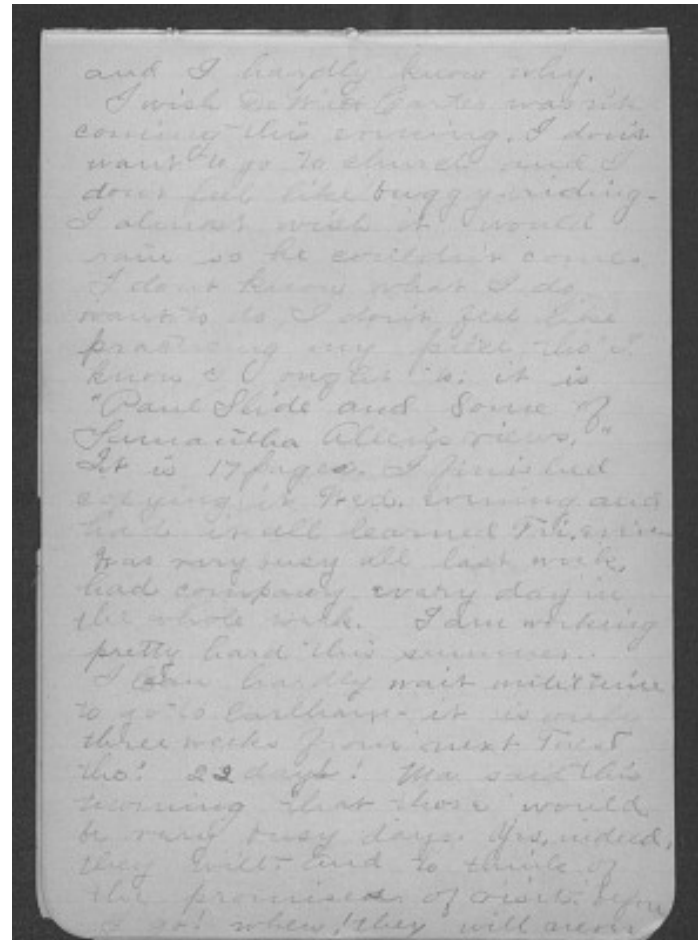 and I hardly know why.
I wish DeWitt Carter wasn't
coming this evening. I don't
want to go to church and I
don't feel like buggy riding-
I almost wish it would
rain so he couldn't come.
I dont know what I do
want to do, I don't feel like
practicing my piece tho' I
know I ought to. it is
"Paul Slide and Some of
Samantha Allen's views."
It is 17 pages. I finished
copying it Wed. evening and
had it all learned Fri. eve-
Was very busy all last week,
had company every day in
the whole week. I am working
pretty hard this summer.
I can hardly wait until time
to go to Earlham- it is only
three weeks from next Tues
tho! 22 days! Ma said this
morning that those would
be very busy days. Yes, indeed,
they will- And to think of
the promises of visits before
I go! whew! they will never